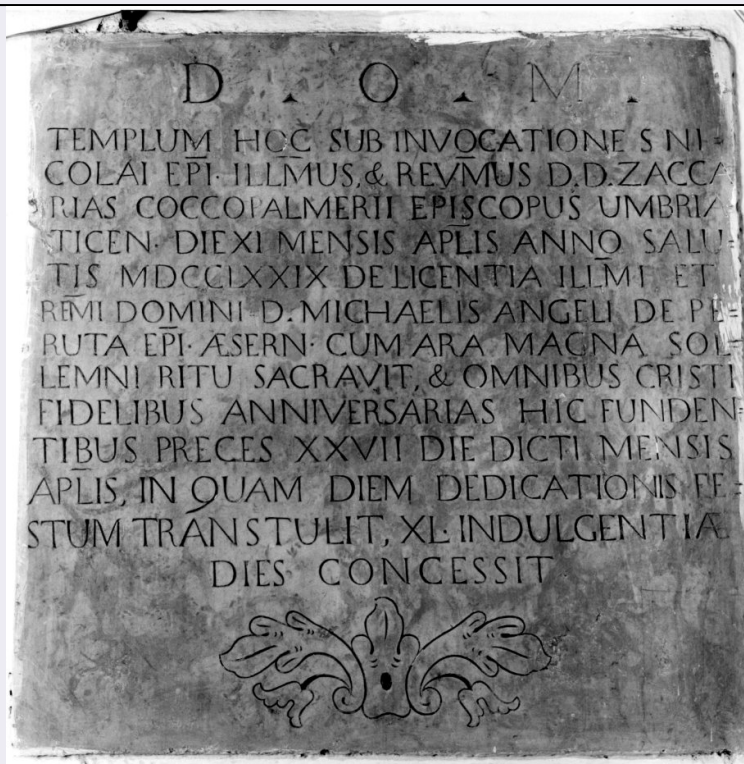 D . O . M .
TEMPLUM HOC SUB INVOCATIONE S NI=
COLAI EPI· ILLMUS, & REVMUS D.D. ZACCA
RIAS COCCOPALMERII EPISCOPUS UMBRIA
TICEN· DIE XI MENSIS APLIS ANNO SALU=
TIS MDCCLXXIX DE LICENTIA ILLMI ET
REMI DOMINI D. MICHAELIS ANGELI DE PE=
RUTA EPI· ÆSERN· CUM ARA MAGNA SOL=
LEMNI RITU SACRAVIT, & OMNIBUS CRISTI
FIDELIBUS ANNIVERSARIAS HIC FUNDEN=
TIBUS PRECES XXVII DIE DICTI MENSIS
APLIS, IN QUAM DIEM DEDICATIONIS FE=
STUM TRANSTULIT, XL· INDULGENTIÆ
DIES CONCESSIT